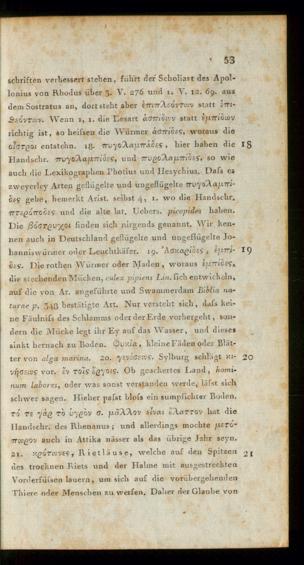 53
schriften verbessert stehen, führt der Scholiast des Apol-
lonius von Rhodus über 3. V. 276 und 1. V. 12. 69. aus
dem Sostratus an, dort steht aber ἐπιπλεόντων statt ἐπι-
θεόντων. Wenn 1, 1. die Lesart ἀσπίδων statt ἐμπίδων
richtig ist, so heissen die Würmer ἀσπίδες, woraus die
οἶστροι entstehn. 18. πυγολαμπίδες, hier haben die 18
Handschr. πυγολαμπίδες, und πυρολαμπίδες, so wie
auch die Lexikographen Photius und Hesychius. Daſs es
zweyerley Arten geflügelte und ungeflügelte πυγολαμπί-
δες gebe, bemerkt Arist. selbst 4, 1. wo die Handschr.
πτερόποδες und die alte lat. Uebers. picopides haben.
Die βόστρυχοι finden sich nirgends genannt. Wir ken-
nen auch in Deutschland geflügelte und ungeflügelte Jo-
hanniswürmer oder Leuchtkäfer. 19. Ἀσκαρίδες, ἐμπί- 19
δες. Die rothen Würmer oder Maden, woraus ἐμπίδες,
die stechenden Mücken, culex pipiens Lin. sich entwickeln,
auf die von Ar. angeführte und Swammerdam Biblia na-
turae p. 348 bestätigte Art. Nur versteht sich, daſs kei-
ne Fäulniſs des Schlamms oder der Erde vorhergeht, son-
dern die Mücke legt ihr Ey auf das Wasser, und dieses
sinkt hernach zu Boden. Φυκία, kleine Fäden oder Blät-
ter von alga marina. 20. γενέσεως. Sylburg schlägt κι- 20
νήσεως vor. ἐν τοῖς ἔργοις. Ob geackertes Land, homi-
num labores, oder was sonst verstanden werde, läſst sich
schwer sagen. Hieher paſst bloſs ein sumpfichter Boden.
τό τε γὰρ τὸ ὑγρὸν s. μᾶλλον εἶναι ἔλαττον hat die
Handschr. des Rhenanus; und allerdings mochte μετό-
πωρον auch in Attika nässer als das übrige Jahr seyn.
21. κρότωνες, Rietläuse, welche auf den Spitzen 21
des trocknen Riets und der Halme mit ausgestreckten
Vorderfüssen lauern, um sich auf die vorübergehenden
Thiere oder Menschen zu werfen. Daher der Glaube von